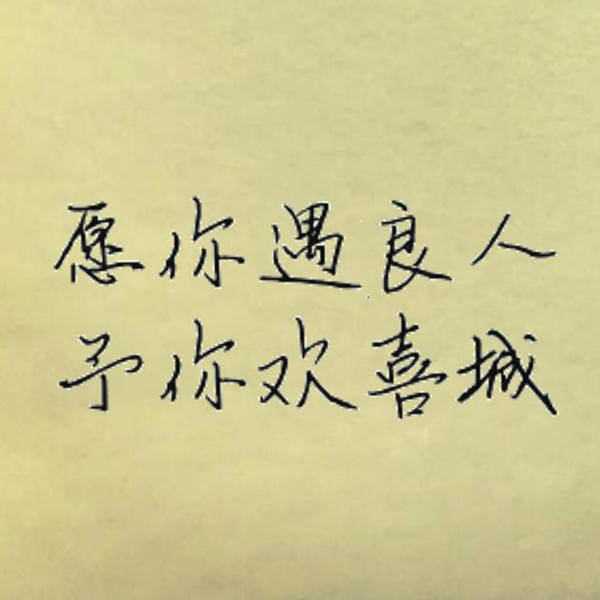 愿你遇良人
予你欢喜城